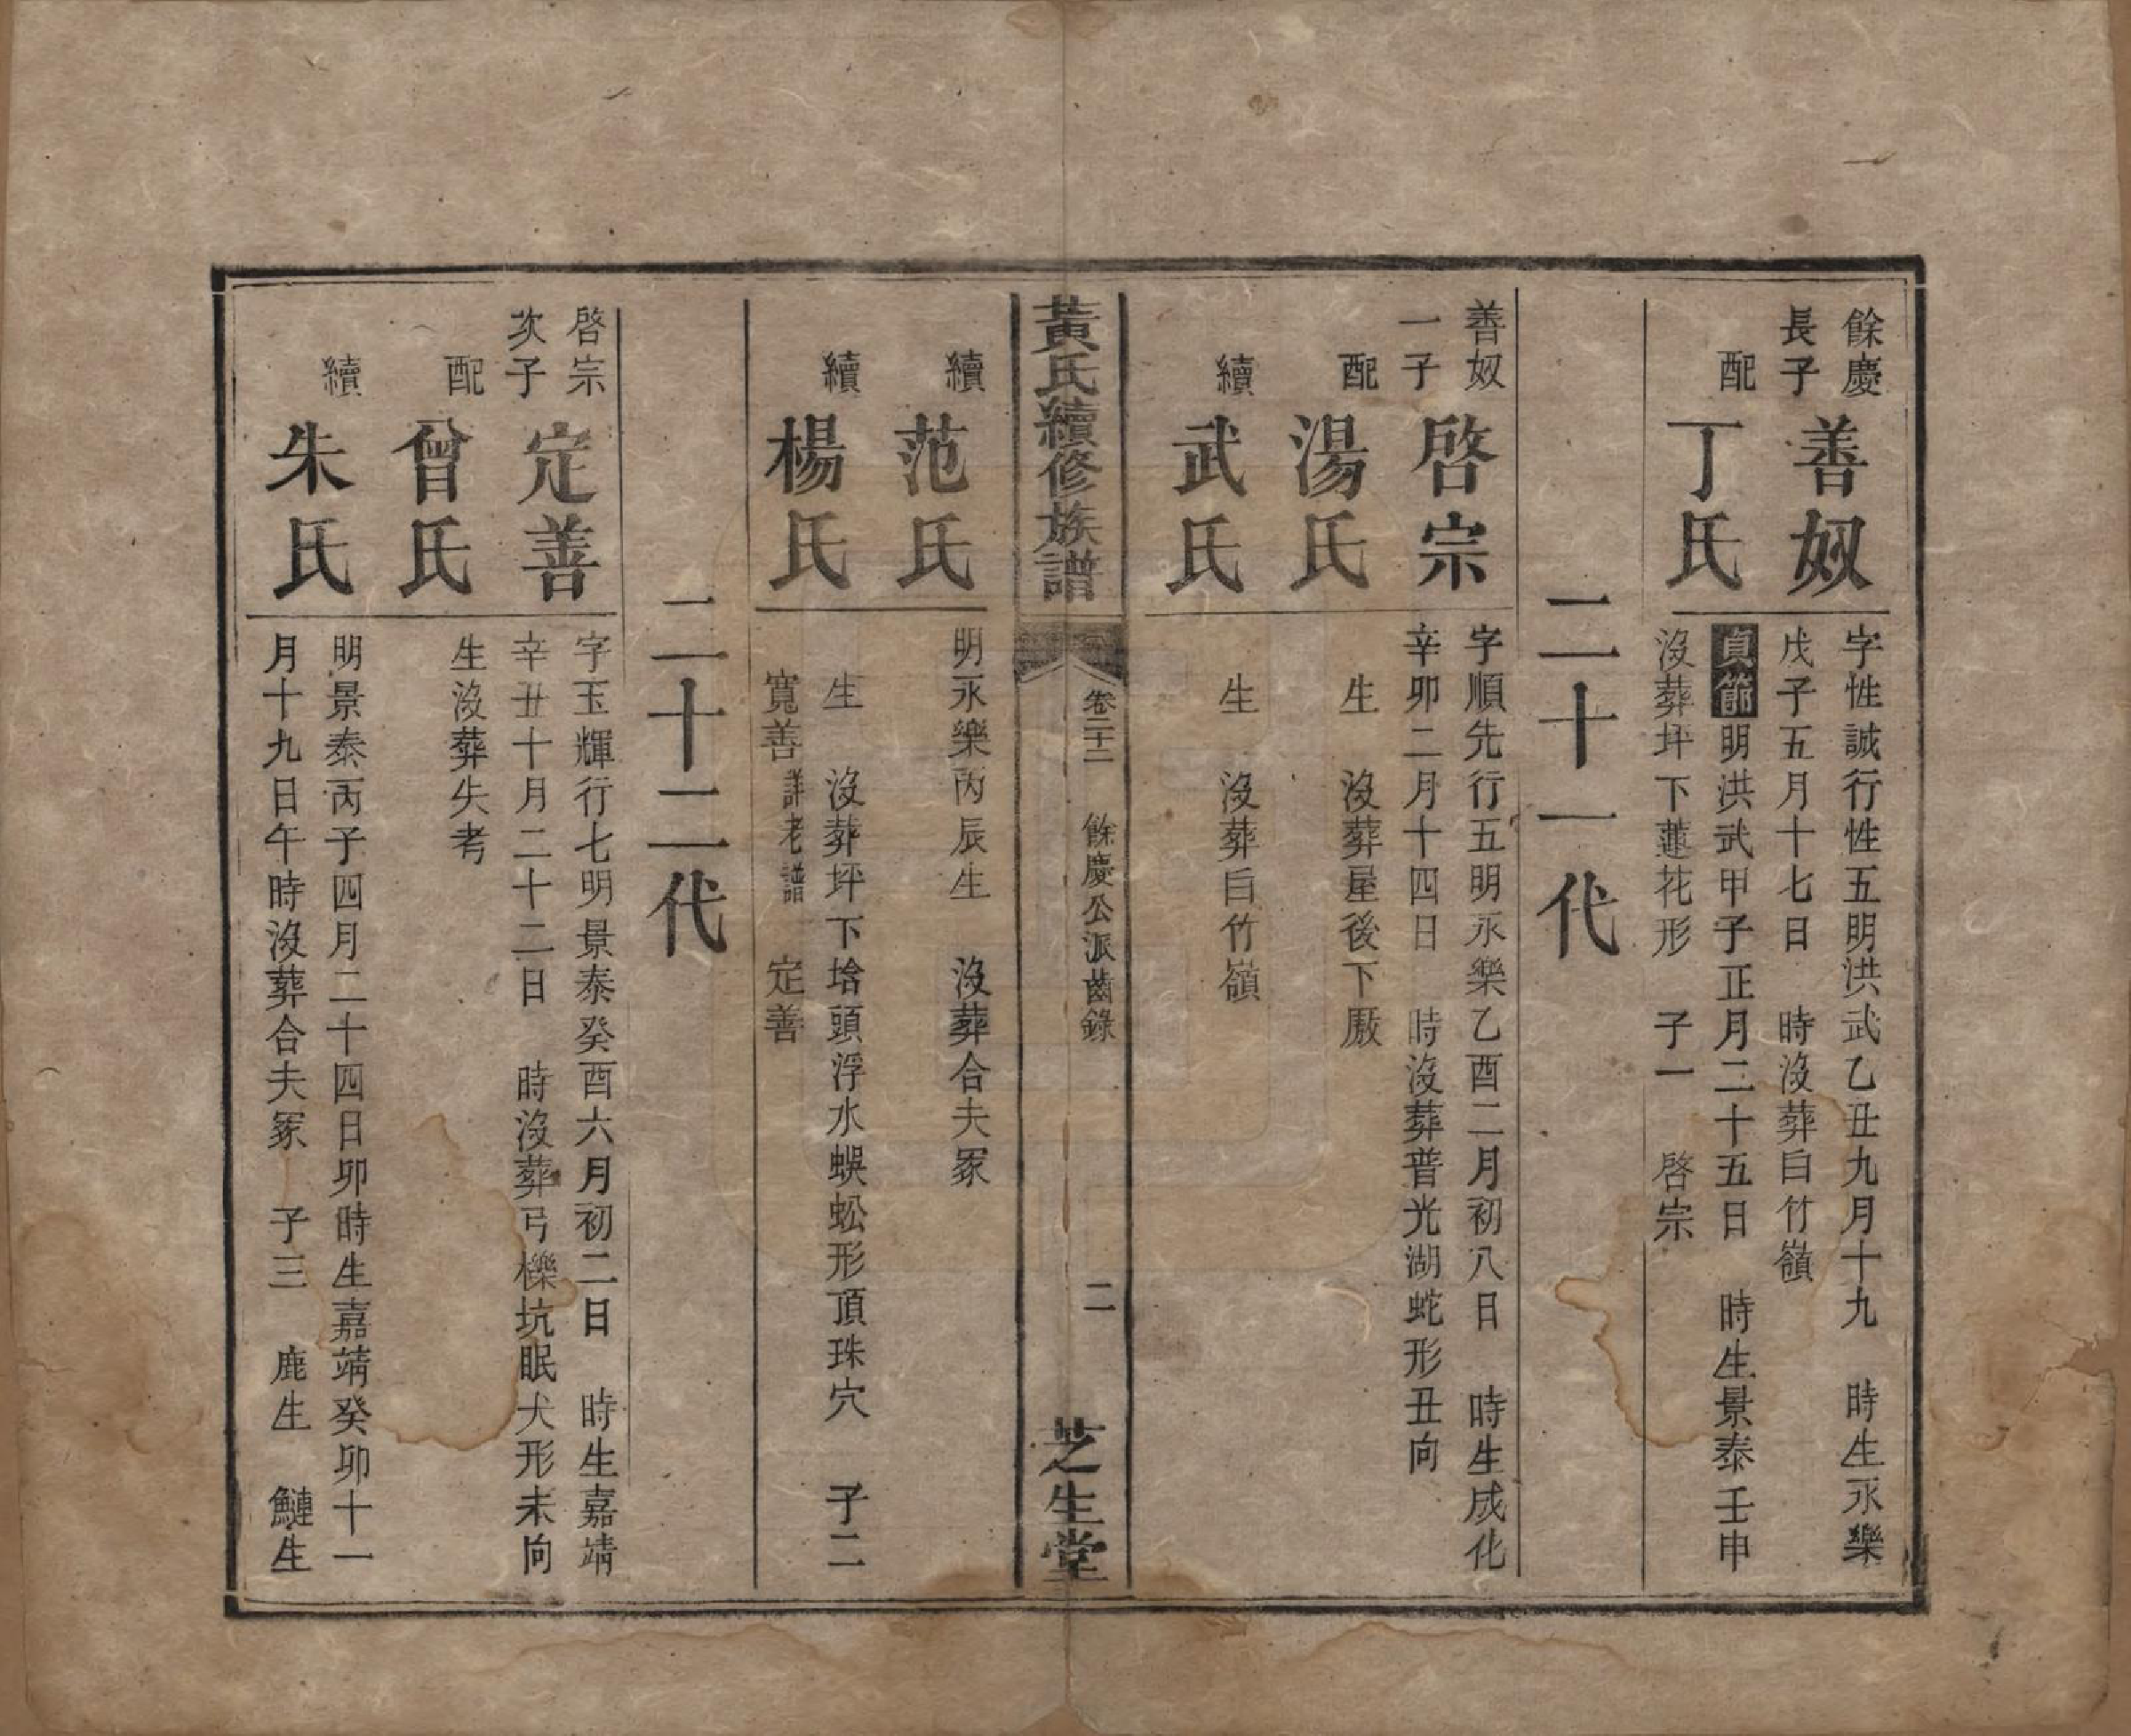 餘慶
長子
善奴
字性誠行性五明洪武乙丑九月十九　時生永樂
戊子五月十七日　時沒葬白竹嶺
配
丁氏
貞節明洪武甲子正月二十五日　時生景泰壬申
沒葬坪下蓮花形　子一　啓宗
二十一代
善奴
一子
啓宗
字順先行五明永樂乙酉二月初八日　時生成化
辛卯二月十四日　時沒葬普光湖蛇形丑向
配
湯氏
生　沒葬屋後下厫
續
武氏
生　沒葬白竹嶺
黃氏續修族譜
卷二十二　餘慶公派齒錄
二
芝生堂
續
范氏
明永樂丙辰生　沒葬合夫冢
續
楊氏
生　沒葬坪下垥頭浮水蜈蚣形頂珠穴　子二
寬善詳老譜　定善
二十二代
啓宗
次子
定善
字玉輝行七明景泰癸酉六月初二日　時生嘉靖
辛丑十月二十二日　時沒葬弓櫟坑眠犬形未向
配
曾氏
生沒葬失考
續
朱氏
明景泰丙子四月二十四日卯時生嘉靖癸卯十一
月十九日午時沒葬合夫冢　子三　鹿生　鰱生